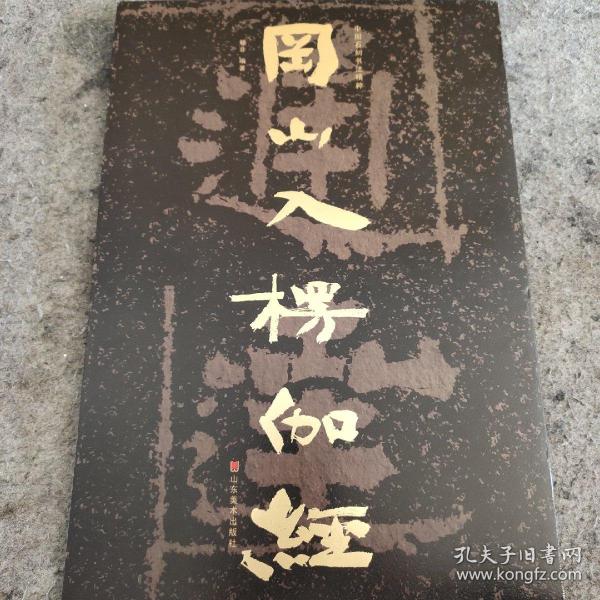 冈山入楞伽經
山东美术出版社
孔夫子旧书网
www.kongfz.com